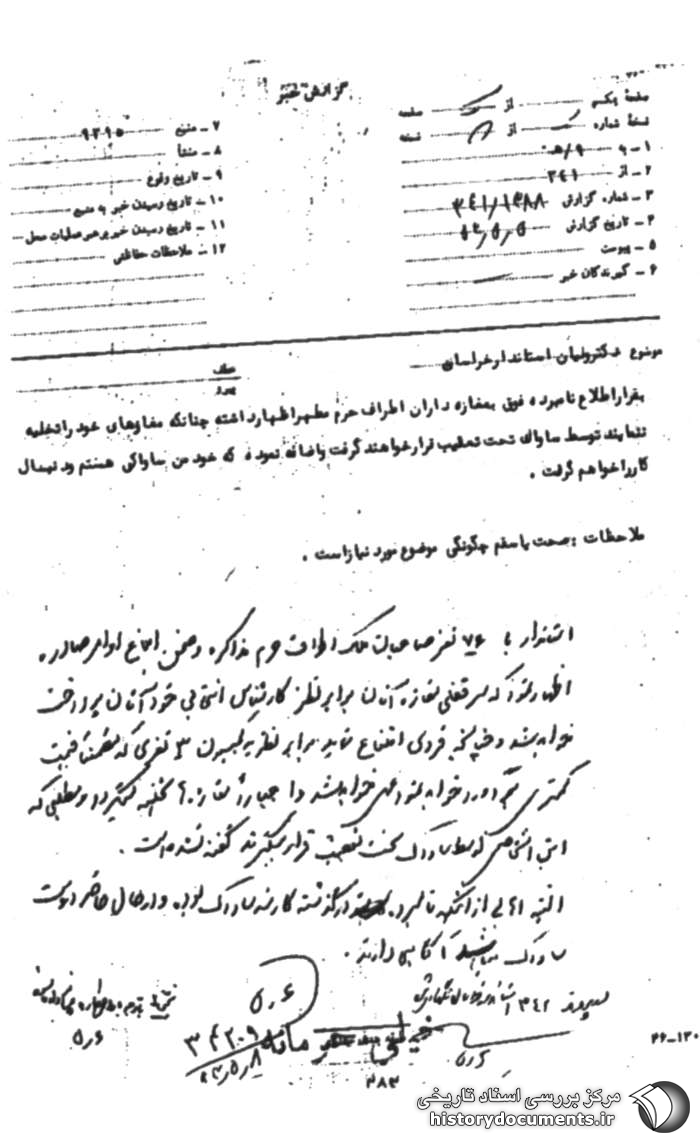 گزارش خبر
صفحهٔ یکم از صفحه
نسخهٔ شماره از نسخه
۱ - به ۹/هـ
۲ - از ۳۴۱
۳ - شماره گزارش ۳۴۱/۱۳۸۸
۴ - تاریخ گزارش
۵ - پیوست
۶ - گیرندگان خبر
۷ - منبع ۹۲۱۵
۸ - منشأ
۹ - تاریخ وقوع
۱۰ - تاریخ رسیدن خبر به منبع
۱۱ - تاریخ رسیدن خبر برهبر عملیات محل
۱۲ - ملاحظات حفاظتی
موضوع دکترولیان استاندار خراسان
بقرار اطلاع نامبرده فوق بمغازه داران اطراف حرم مطهر اظهار داشته چنانکه مغازه‌های خود را تخلیه
ننمایند توسط ساواک تحت تعقیب قرار خواهند گرفت و اضافه نموده که خود من ساواکی هستم و دنبال
کار را خواهم گرفت .
ملاحظات : صحت یا سقم چگونگی موضوع مورد نیاز است .
استاندار با ۷۶ نفر صاحبان ملک اطراف حرم مذاکره و ضمن ابلاغ اوامر صادره
اظهار داشته که سرقفلی مغازه آنان برابر نظر کارشناس انتخابی خود آنان پرداخت
خواهد شد و چنانچه فردی امتناع نماید برابر نظریه کمیسیون ۳ نفری که مطمئناً قیمت
کمتری خواهد شد مغازه تخلیه میگردد و مطلبی که
این اشخاص توسط ساواک تحت تعقیب قرار میگیرند گفته نشده است .
البته اهالی از اینکه نامبرده در گذشته کارمند ساواک بوده و در حال حاضر دوست
ساواک میباشد آگاهی دارند .
خیلی محرمانه
۳۴۲۰۹
۳۸۳
۳۶-۱۳۰
مرکز بررسی اسناد تاریخی
historydocuments.ir